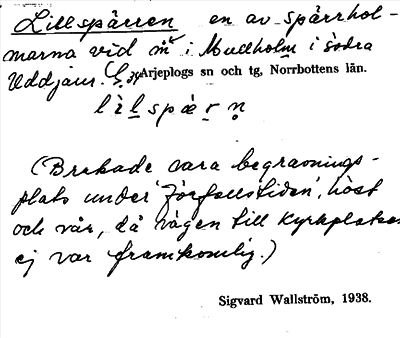 Lillspärren en av spärrhol-
marna vid m i Mullholm i södra
Uddjaur. Arjeplogs sn och tg, Norrbottens län.
(Brukade vara begravnings-
plats under 'förfallstiden', höst
och vår, då vägen till kyrkplatsen
ej var framkomlig.)
Sigvard Wallström, 1938.